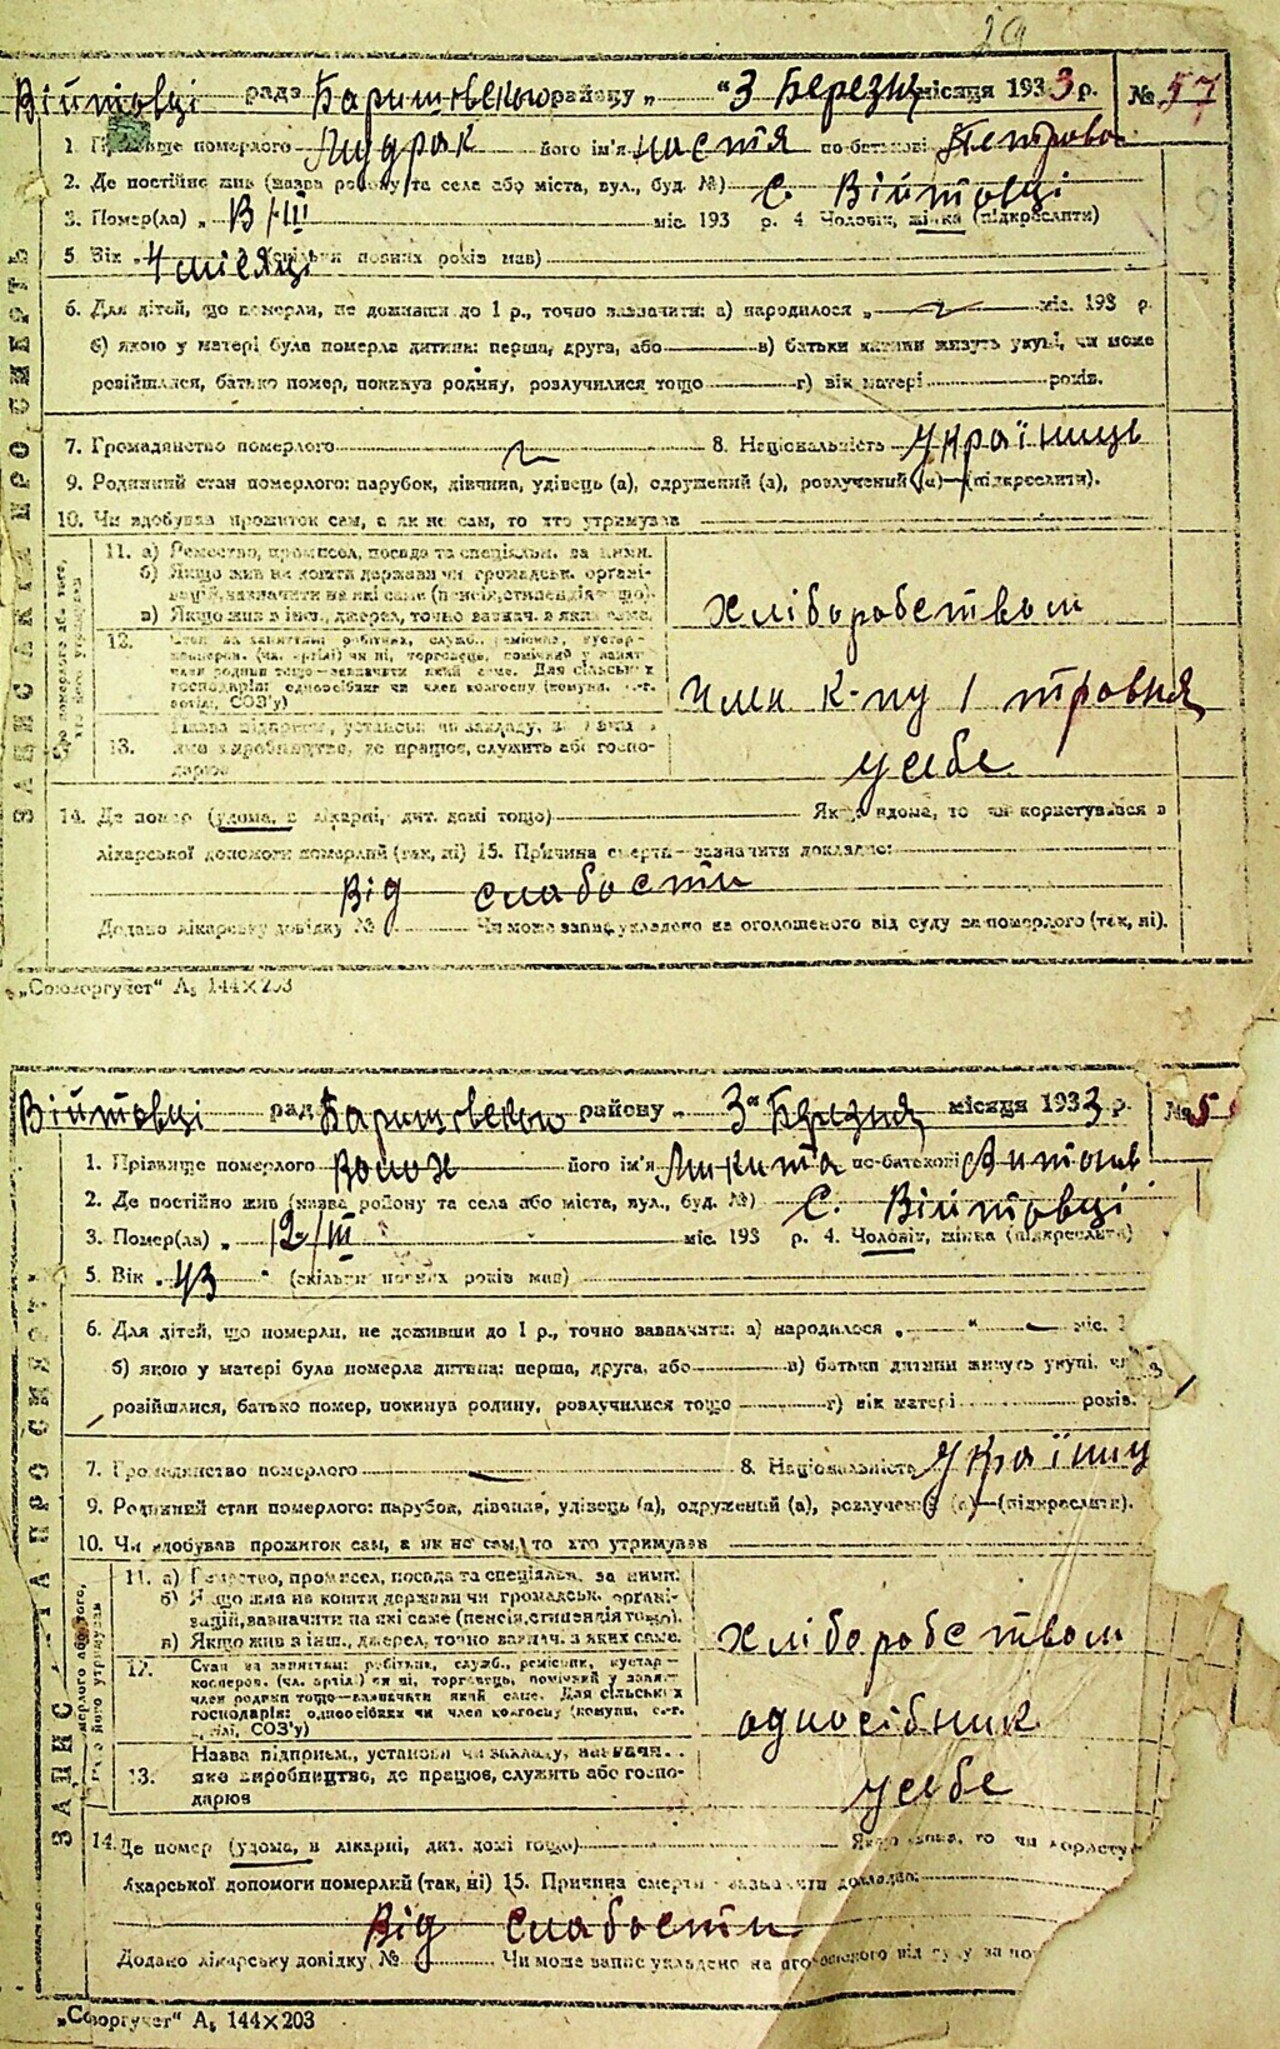 29
Війтовці рада Баришовського району „ “ 3 Березня місяця 1933 р. № 57
1. Прізвище померлого Мудрак його ім'я настя по-батькові Петрова
2. Де постійно жив (назва району та села або міста, вул., буд. №) С. Війтовці
3. Помер(ла) „ В/III міс. 193 р. 4. Чоловік, жінка (підкреслити)
5. Вік 4 місяці (скільки повних років мав)
6. Для дітей, що померли, не доживши до 1 р., точно зазначити: а) народилося „ міс. 193 р.
б) якою у матері була померла дитина: перша, друга, або в) батьки дитини живуть укупі, чи може
розійшлися, батько помер, покинув родину, розлучилися тощо г) вік матері років.
7. Громадянство померлого 8. Національність Українць
9. Родинний стан померлого: парубок, дівчина, удівець (а), одружений (а), розлучений (а)—(підкреслити).
10. Чи здобував прожиток сам, а як не сам, то хто утримував
11. а) Ремество, промисел, посада та спеціяльн. за ними.
б) Якщо жив на кошти держави чи громадськ. органі-
зацій, зазначити на які саме (пенсія, стипендія тощо).
в) Якщо жив з інш., джерел, точно зазнач. з яких саме.
хліборобством
12. Стан за заняттям: робітник, служб., ремісник, кустар-
кооперов. (чл. артілі) чи ні, торговець, помічний у занят.
член родини тощо—зазначити який саме. Для сільських
господарів: одноосібник чи член колгоспу (комуни, с.-г.
артілі, СОЗ'у)
член к-пу 1 травня
13. Назва підприєм., установи чи закладу,
яке виробництво, де працює, служить або госпо-
дарює
усебе
14. Де помер (удома, в лікарні, дит. домі тощо) Якщо вдома, то чи користувався в
лікарської допомоги померлий (так, ні) 15. Причина смерти—зазначити докладно:
Від слабости
Додано лікарську довідку № Чи може запис укладено на оголошеного від суду за померлого (так, ні).
ЗАПИС АКТА ПРО СМЕРТЬ
„Союзоргучет“ А₅ 144×203
Війтовці рад Баришовського району „ 3 “ Березня місяця 1933 р. № 5
1. Прізвище померлого Волох його ім'я Микита по-батькові Антонів
2. Де постійно жив (назва району та села або міста, вул., буд. №) С. Війтовці
3. Помер(ла) „ 12/III міс. 193 р. 4. Чоловік, жінка (підкреслити)
5. Вік 43 (скільки повних років мав)
6. Для дітей, що померли, не доживши до 1 р., точно зазначити: а) народилося „ “ міс. 1
б) якою у матері була померла дитина: перша, друга, або в) батьки дитини живуть укупі,
розійшлися, батько помер, покинув родину, розлучилися тощо г) вік матері років.
7. Громадянство померлого 8. Національність Українц
9. Родинний стан померлого: парубок, дівчина, удівець (а), одружений (а), розлучений (а)—(підкреслити).
10. Чи здобував прожиток сам, а як не сам, то хто утримував
11. а) Ремество, промисел, посада та спеціяльн. за ними.
б) Якщо жив на кошти держави чи громадськ. органі-
зацій, зазначити на які саме (пенсія, стипендія тощо).
в) Якщо жив з інш., джерел, точно зазнач. з яких саме.
хліборобством
12. Стан за заняттям: робітник, служб., ремісник, кустар-
кооперов. (чл. артілі) чи ні, торговець, помічний у занят.
член родини тощо—зазначити який саме. Для сільських
господарів: одноосібник чи член колгоспу (комуни, с.-г.
артілі, СОЗ'у)
одноосібник
13. Назва підприєм., установи чи закладу, зазначи.
яке виробництво, де працює, служить або госпо-
дарює
усебе
14. Де помер (удома, в лікарні, дит. домі тощо) Якщо вдома, то чи користу
лікарської допомоги померлий (так, ні) 15. Причина смерти—зазначити докладно:
Від слабости
Додано лікарську довідку № Чи може запис укладено на оголошеного від суду за по
ЗАПИС АКТА ПРО СМЕРТЬ
„Союзоргучет“ А₅ 144×203